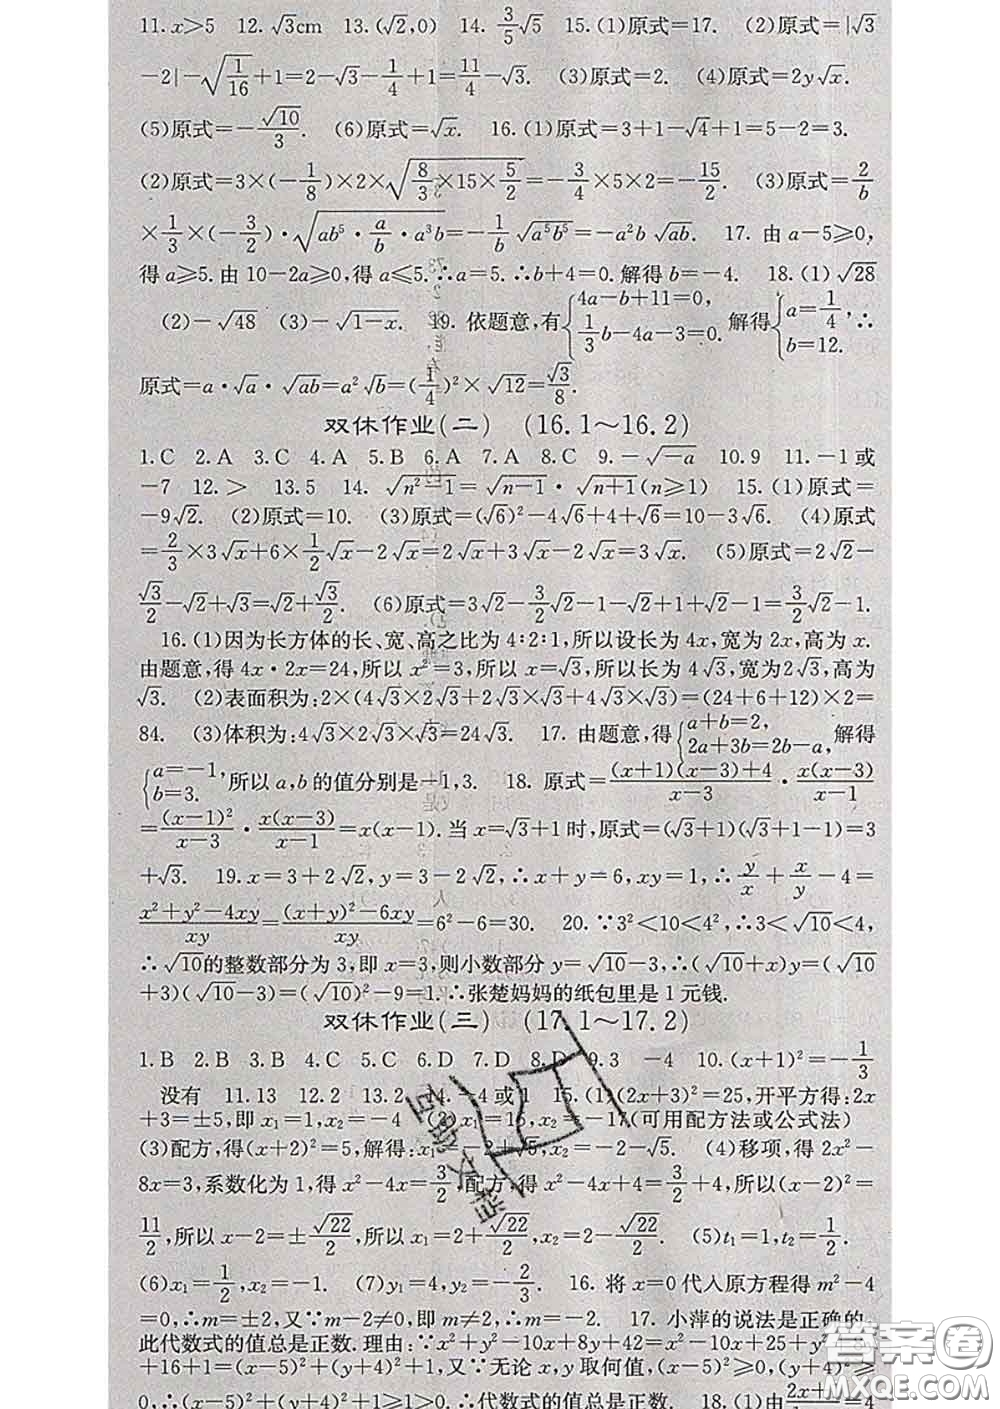 11. x>5　12. √3cm　13. (√2,0)　14. 3/5√5　15. (1)原式=17.　(2)原式=|√3
-2|-√(1/16)+1=2-√3-1/4+1=11/4-√3.　(3)原式=2.　(4)原式=2y√x.
(5)原式=-√10/3.　(6)原式=√x.　16. (1)原式=3+1-√4+1=5-2=3.
(2)原式=3×(-1/8)×2×√(8/3×15×5/2)=-3/4×5×2=-15/2.　(3)原式=2/b
×1/3×(-3/2)·√(ab⁵·a/b·a³b)=-1/b√(a⁵b⁵)=-a²b√(ab).　17. 由 a-5≥0,
得 a≥5. 由 10-2a≥0,得 a≤5. ∴a=5. ∴b+4=0. 解得 b=-4.　18. (1)√28
(2)-√48　(3)-√(1-x).　19. 依题意,有{4a-b+11=0, 1/3b-4a-3=0. 解得{a=1/4, b=12. ∴
原式=a·√a·√(ab)=a²√b=(1/4)²×√12=√3/8.
双休作业(二)　(16.1～16.2)
1. C　2. A　3. C　4. A　5. B　6. A　7. A　8. C　9. -√(-a)　10. 9　11. -1 或
-7　12. >　13. 5　14. √(n²-1)=√(n-1)·√(n+1)(n≥1)　15. (1)原式=
-9√2.　(2)原式=10.　(3)原式=(√6)²-4√6+4+√6=10-3√6.　(4)原式
=2/3×3√x+6×1/2√x-2√x=2√x+3√x-2√x=3√x.　(5)原式=2√2-
√3/2-√2+√3=√2+√3/2.　(6)原式=3√2-3/2√2-1-√2+1+√2-1=3/2√2-1.
16. (1)因为长方体的长、宽、高之比为 4:2:1,所以设长为 4x,宽为 2x,高为 x.
由题意,得 4x·2x=24,所以 x²=3,所以 x=√3,所以长为 4√3,宽为2√3,高为
√3.　(2)表面积为:2×(4√3×2√3+2√3×√3+4√3×√3)=(24+6+12)×2=
84.　(3)体积为:4√3×2√3×√3=24√3.　17. 由题意,得{a+b=2, 2a+3b=2b-a, 解得
{a=-1, b=3. 所以 a,b 的值分别是-1,3.　18. 原式=((x+1)(x-3)+4)/(x-3)·x(x-3)/(x-1)
=(x-1)²/(x-3)·x(x-3)/(x-1)=x(x-1). 当 x=√3+1 时,原式=(√3+1)(√3+1-1)=3
+√3.　19. x=3+2√2,y=3-2√2,∴x+y=6,xy=1,∴y/x+x/y-4=
(x²+y²-4xy)/xy=((x+y)²-6xy)/xy=6²-6=30.　20. ∵3²<10<4²,∴3<√10<4,
∴√10的整数部分为 3,即 x=3,则小数部分 y=√10-3,∴(√10+x)y=(√10
+3)(√10-3)=(√10)²-9=1. ∴张楚妈妈的纸包里是 1 元钱.
双休作业(三)　(17.1～17.2)
1. B　2. B　3. B　4. D　5. C　6. D　7. D　8. D　9. 3　-4　10. (x+1)²=-1/3
没有　11. 13　12. 2　13. 2　14. -4 或 1　15. (1)(2x+3)²=25,开平方得:2x
+3=±5,即 x₁=1,x₂=-4　(2)x₁=15,x₂=-1 (可用配方法或公式法)
(3)配方,得(x+2)²=5,解得:x₁=-2+√5,x₂=-2-√5.　(4)移项,得 2x²-
8x=3,系数化为 1,得 x²-4x=3/2,配方,得 x²-4x+4=3/2+4,所以(x-2)²=
11/2,所以 x-2=±√22/2,所以 x₁=2+√22/2,x₂=2-√22/2.　(5)t₁=1,t₂=1/2.
(6)x₁=1/2,x₂=-1.　(7)y₁=4,y₂=-2/3.　16. 将 x=0 代入原方程得 m²-4
=0,∴m=±2,又∵m-2≠0,即 m≠2,∴m=-2.　17. 小萍的说法是正确的.
此代数式的值总是正数. 理由:∵x²+y²-10x+8y+42=x²-10x+25+y²+8y
+16+1=(x-5)²+(y+4)²+1,又∵无论 x,y 取何值,(x-5)²≥0,(y+4)²≥
0,∴(x-5)²+(y+4)²+1≥1>0. ∴代数式的值总是正数.　18. (1)由 2x+ =4
互助文档
答案圈
MXQE.COM